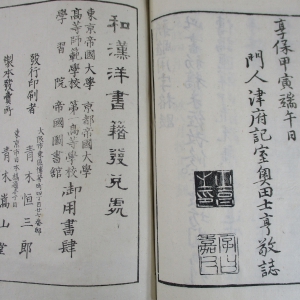 享保甲寅端午日
門人津府記室奧田士亨敬誌
和漢洋書籍發兌處
東京帝國大學 京都帝國大學
高等師範學校 第一高等學校 御用書肆
學習院 帝國圖書館
發行印刷者 青木恒三郎
製本發賣所 青木嵩山堂